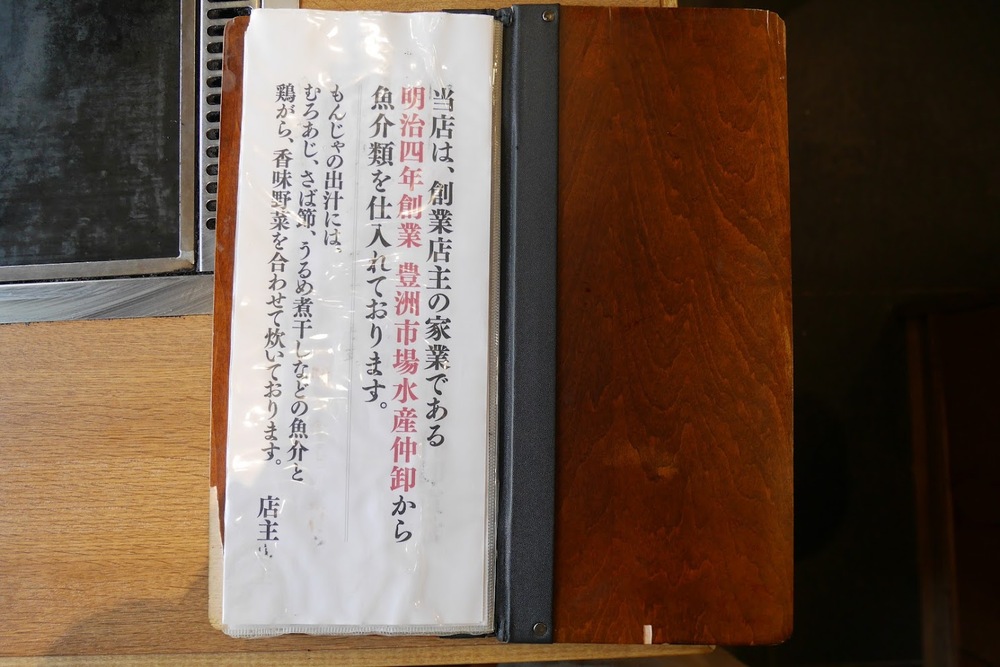 当店は、創業店主の家業である
明治四年創業 豊洲市場水産仲卸から
魚介類を仕入れております。
もんじゃの出汁には、
むろあじ、さば節、うるめ煮干しなどの魚介と
鶏がら、香味野菜を合わせて炊いております。
店主